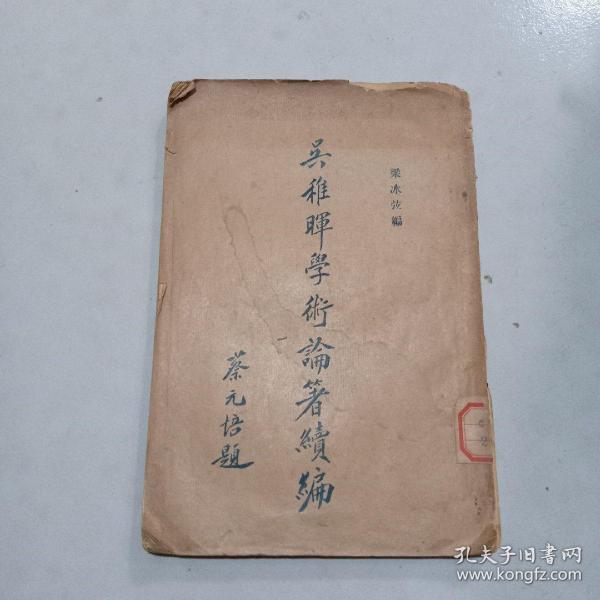 梁冰弦編
吳稚暉學術論著續編
蔡元培題
C
2
孔夫子旧书网
www.kongfz.com